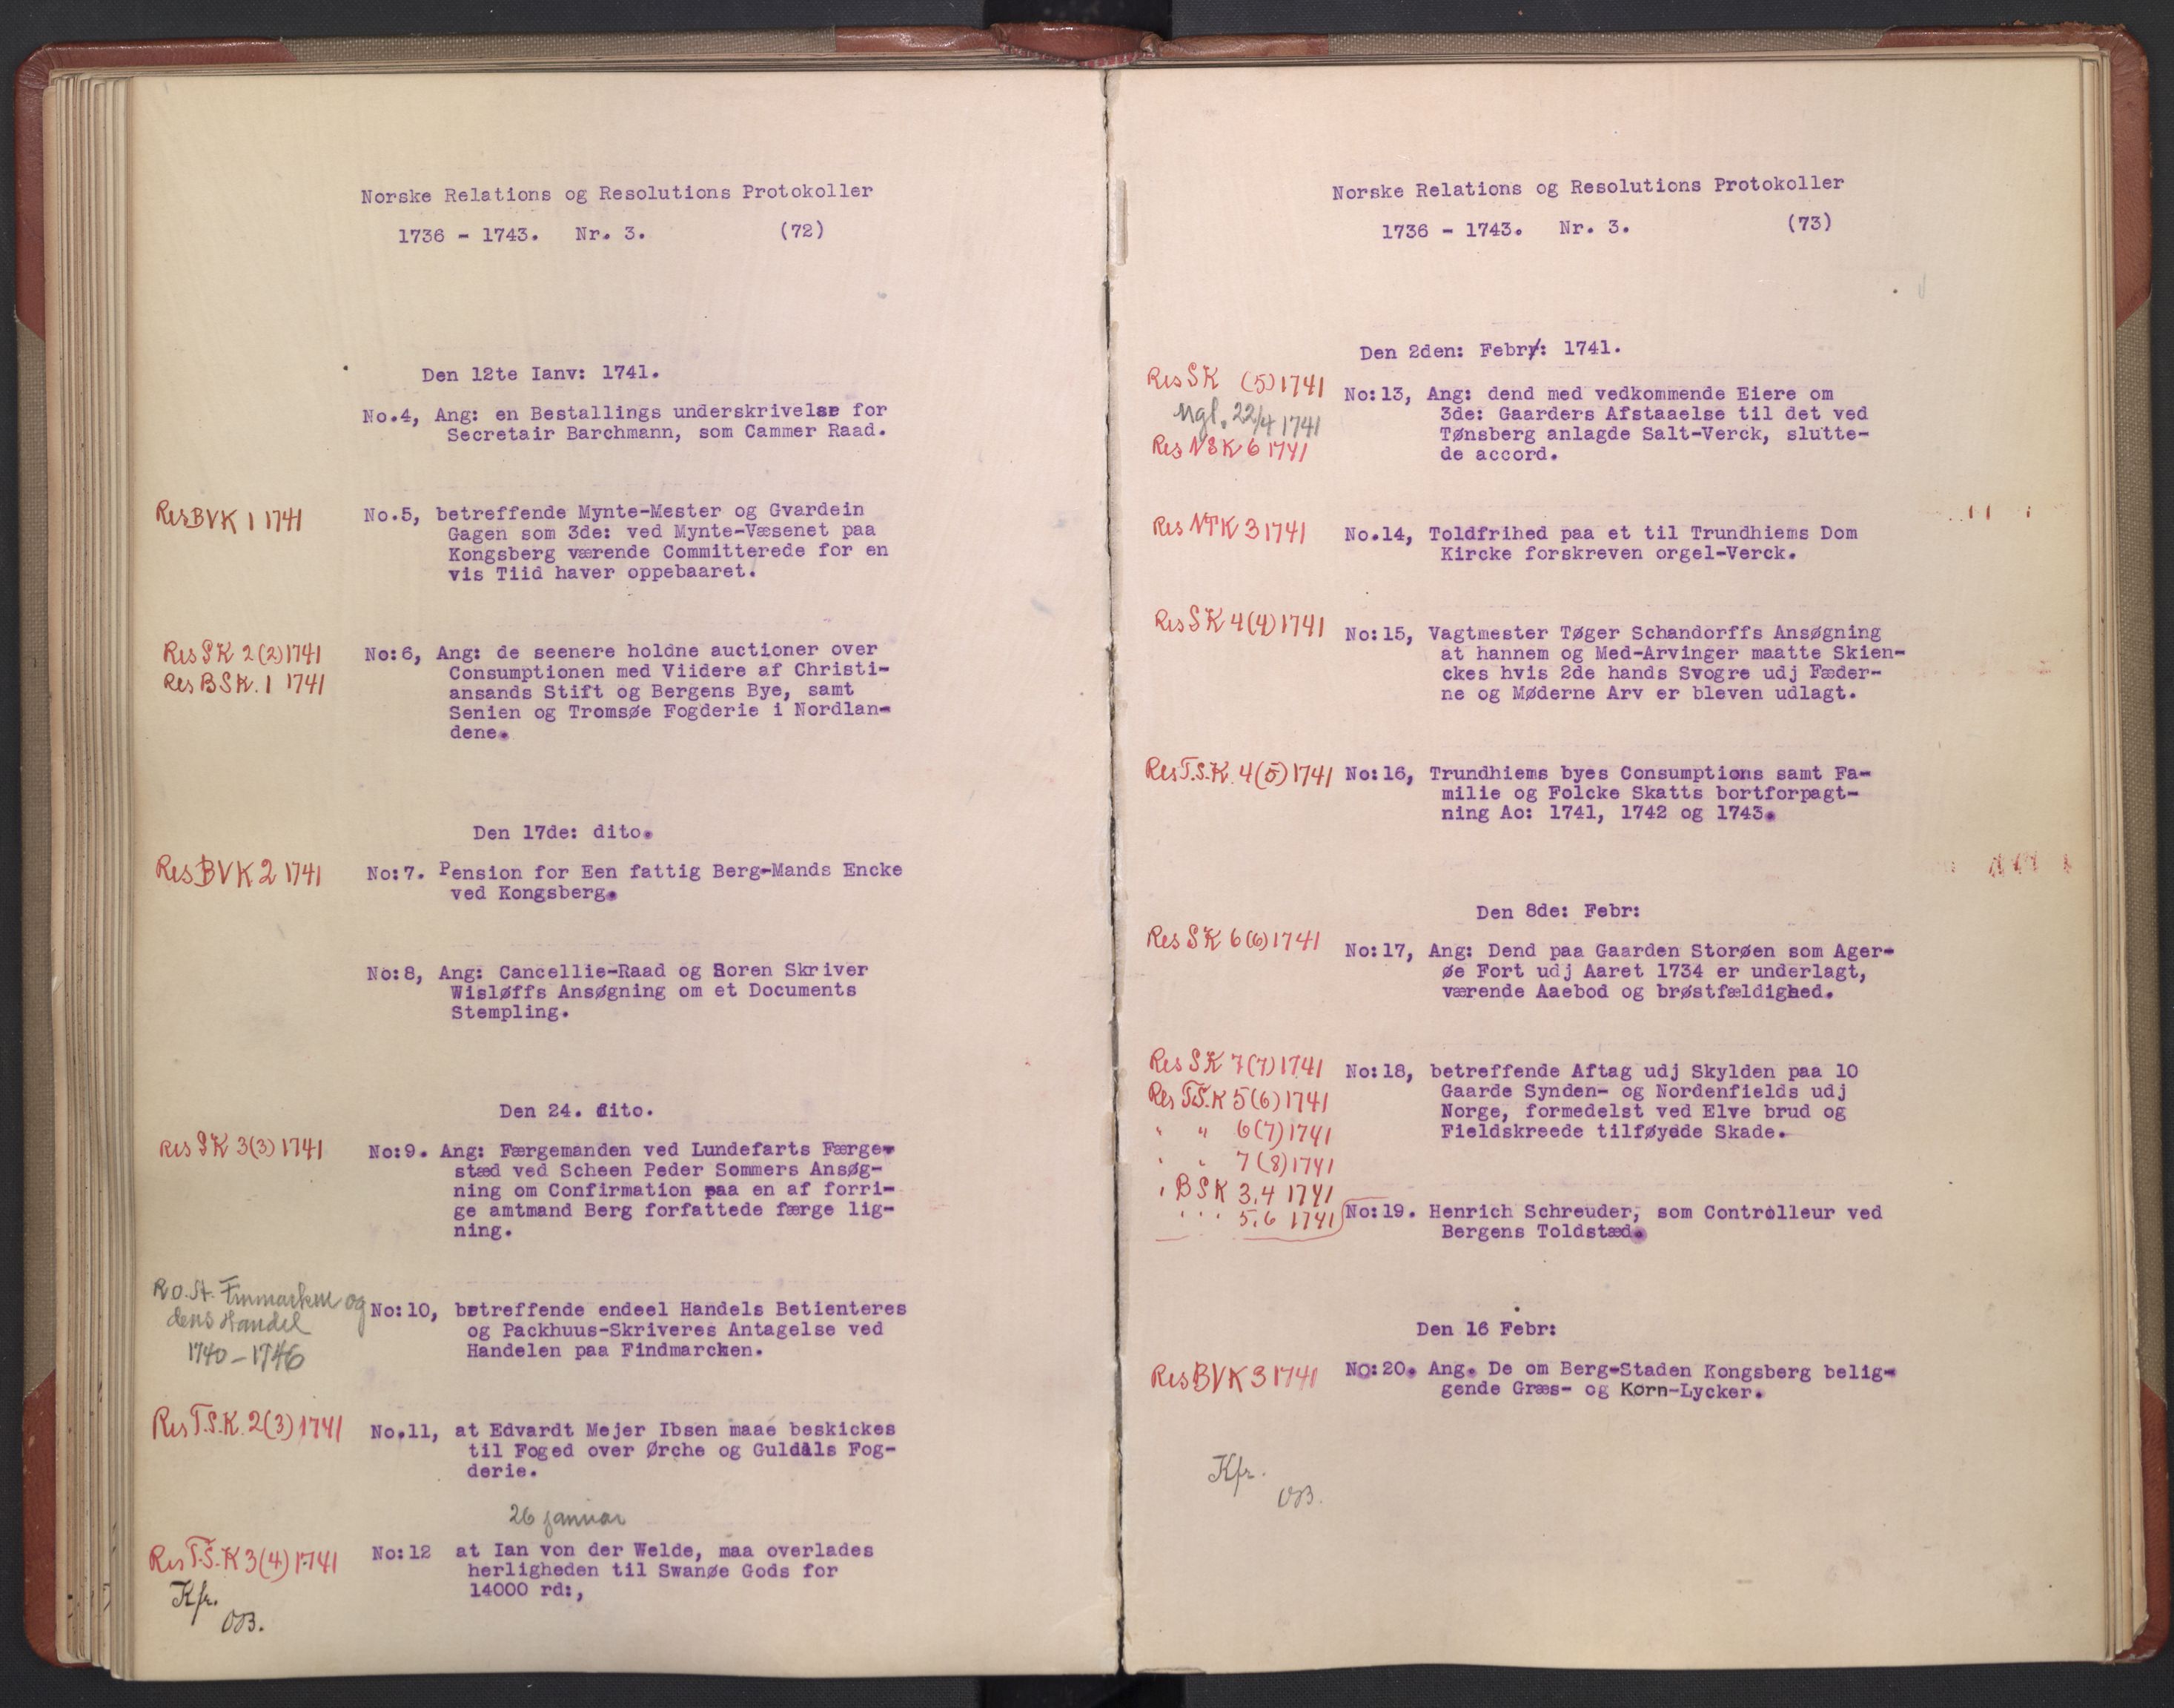 Norske Relations og Resolutions Protokoller
1736 - 1743. Nr. 3. (72)
Den 12te Ianv: 1741.
No.4, Ang: en Bestallings underskrivelse for
Secretair Barchmann, som Cammer Raad.
Res BVK 1 1741
No.5, betreffende Mynte-Mester og Gvardein
Gagen som 3de: ved Mynte-Væsenet paa
Kongsberg værende Committerede for en
vis Tiid haver oppebaaret.
Res SK 2(2) 1741
Res BSK. 1 1741
No:6, Ang: de seenere holdne auctioner over
Consumptionen med Viidere af Christi-
ansands Stift og Bergens Bye, samt
Senien og Tromsøe Fogderie i Nordlan-
dene.
Den 17de: dito.
Res BVK 2 1741
No:7. Pension for Een fattig Berg-Mands Encke
ved Kongsberg.
No:8, Ang: Cancellie-Raad og Soren Skriver
Wisløffs Ansøgning om et Documents
Stempling.
Den 24. dito.
Res SK 3(3) 1741
No:9. Ang: Færgemanden ved Lundefarts Færge-
stæd ved Scheen Peder Sommers Ansøg-
ning om Confirmation paa en af forri-
ge amtmand Berg forfattede færge lig-
ning.
R.o.St. Finmarken og
dens Handel
1740-1746
No:10, betreffende endeel Handels Betienteres
og Packhuus-Skriveres Antagelse ved
Handelen paa Findmarcken.
Res T.S.K. 2(3) 1741
No.11, at Edvardt Mejer Ibsen maae beskickes
til Foged over Ørche og Guldals Fog-
derie.
26 januar
Res T.S.K 3(4) 1741
No:12 at Ian von der Welde, maa overlades
herligheden til Swanøe Gods for
14000 rd:,
Kfr.
OB.
Norske Relations og Resolutions Protokoller
1736 - 1743. Nr. 3. (73)
Den 2den: Febr: 1741.
Res SK (5) 1741
Mgl. 22/4 1741
Res NSK 6 1741
No:13, Ang: dend med vedkommende Eiere om
3de: Gaarders Afstaaelse til det ved
Tønsberg anlagde Salt-Verck, slutte-
de accord.
Res NTK 3 1741
No.14, Toldfrihed paa et til Trundhiems Dom
Kircke forskreven orgel-Verck.
Res SK 4(4) 1741
No:15, Vagtmester Tøger Schandorffs Ansøgning
at hannem og Med-Arvinger maatte Skien-
ckes hvis 2de hands Svogre udj Fæder-
ne og Møderne Arv er bleven udlagt.
Res T.S.K. 4(5) 1741
No:16, Trundhiems byes Consumptions samt Fa-
milie og Folcke Skatts bortforpagt-
ning Ao: 1741, 1742 og 1743.
Den 8de: Febr:
Res SK 6(6) 1741
No:17, Ang: Dend paa Gaarden Storøen som Ager-
øe Fort udj Aaret 1734 er underlagt,
værende Aaebod og brøstfældighed.
Res SK 7(7) 1741
Res T.S.K 5(6) 1741
" " 6(7) 1741
" " 7(8) 1741
" BSK 3.4 1741
" " " 5.6 1741
No:18, betreffende Aftag udj Skylden paa 10
Gaarde Synden- og Nordenfields udj
Norge, formedelst ved Elve brud og
Fieldskreede tilføyede Skade.
No:19. Henrich Schreuder, som Controlleur ved
Bergens Toldstæd.
Den 16 Febr:
Res BVK 3 1741
No:20. Ang. De om Berg-Staden Kongsberg belig-
gende Græs- og Korn-Lycker.
Kfr.
OB.